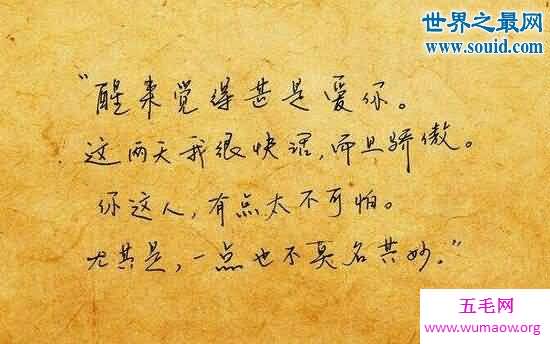 世界之最网
www.souid.com
“醒来觉得甚是爱你。
这两天我很快活，而且骄傲。
你这人，有点太不可怕。
尤其是，一点也不莫名其妙。”
五毛网
www.wumaow.org